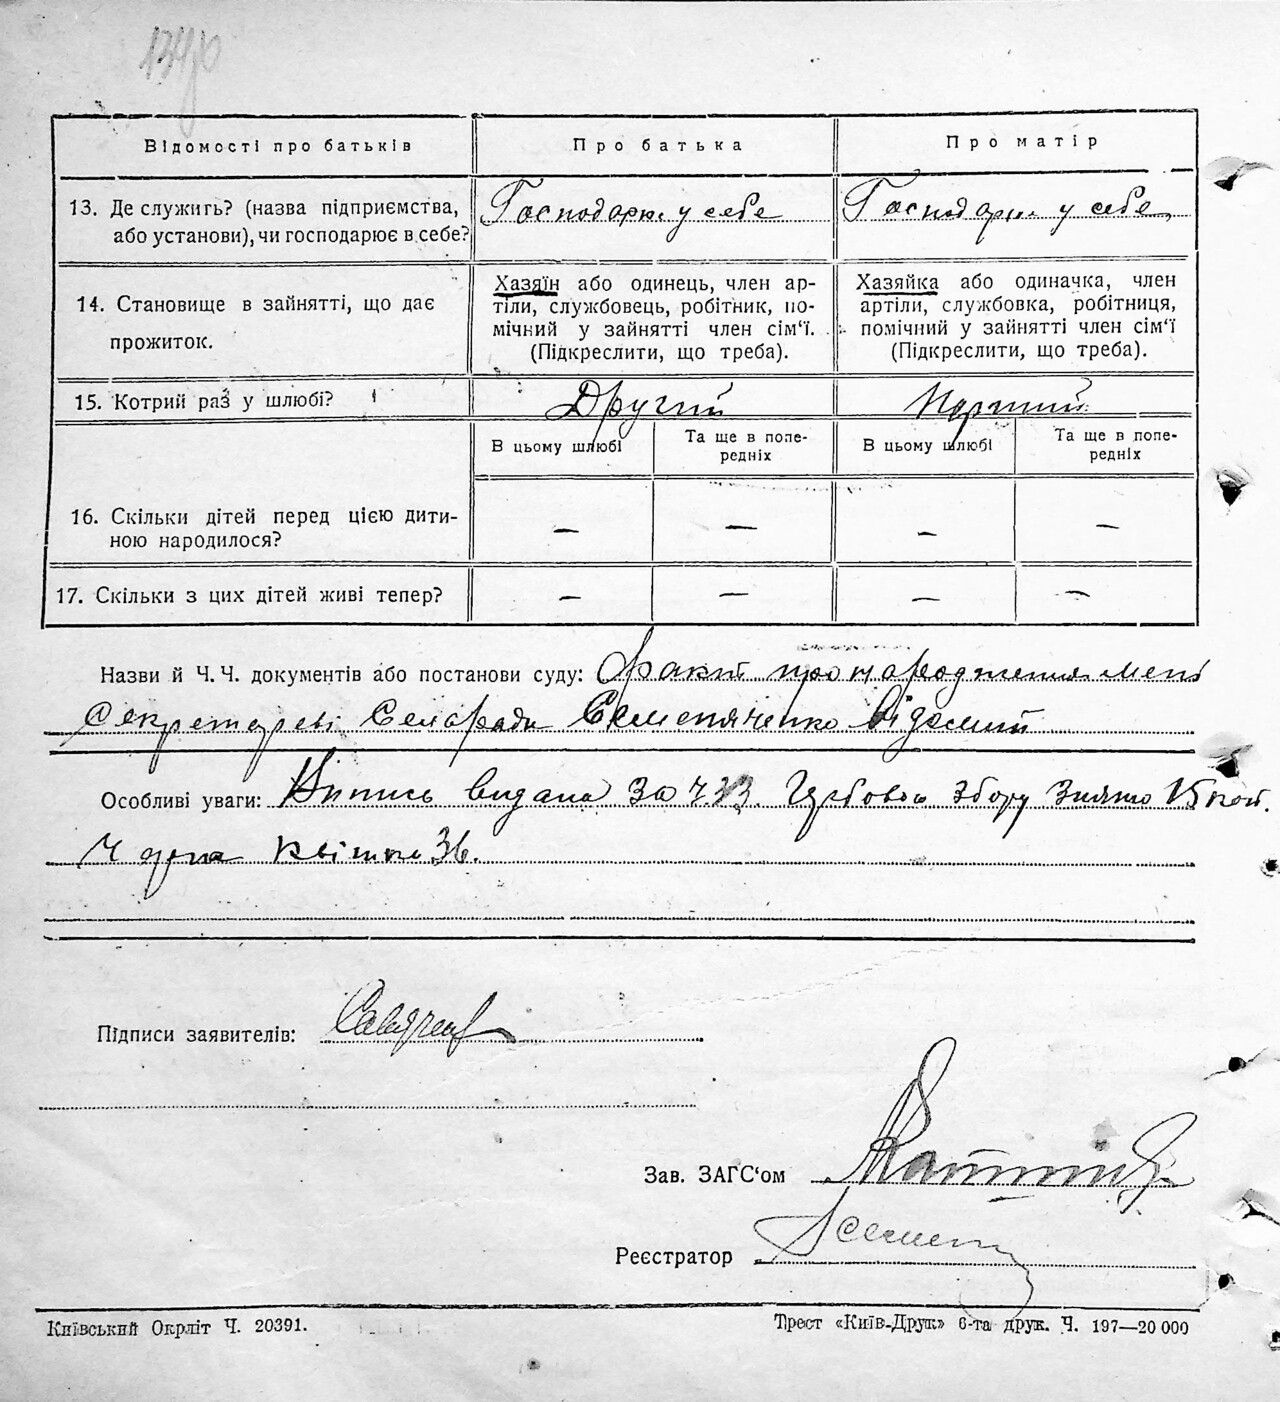 134
Відомості про батьків
Про батька
Про матір
13. Де служить? (назва підприємства, або установи), чи господарює в себе?
Господарює у себе
Господарює у себе
14. Становище в зайнятті, що дає прожиток.
Хазяїн або одинець, член ар-
тіли, службовець, робітник, по-
мічний у зайнятті член сім'ї.
(Підкреслити, що треба).
Хазяйка або одиначка, член
артіли, службовка, робітниця,
помічний у зайнятті член сім'ї
(Підкреслити, що треба).
15. Котрий раз у шлюбі?
Другий
Перший
В цьому шлюбі
Та ще в попе-
редніх
В цьому шлюбі
Та ще в попе-
редніх
16. Скільки дітей перед цією дити-
ною народилося?
— — — —
17. Скільки з цих дітей живі тепер?
— — — —
Назви й Ч. Ч. документів або постанови суду: Факт про народження мені
Секретареві Сельради Семеняченко відомий
Особливі уваги: Випись видана за ч. 33. Гербовою збору знято 15 коп.
4 дня квітня 36.
Підписи заявителів:
Зав. ЗАГС'ом
Реєстратор
Київський Окрліт Ч. 20391.
Трест «Київ-Друк» 6-та друк. Ч. 197—20 000